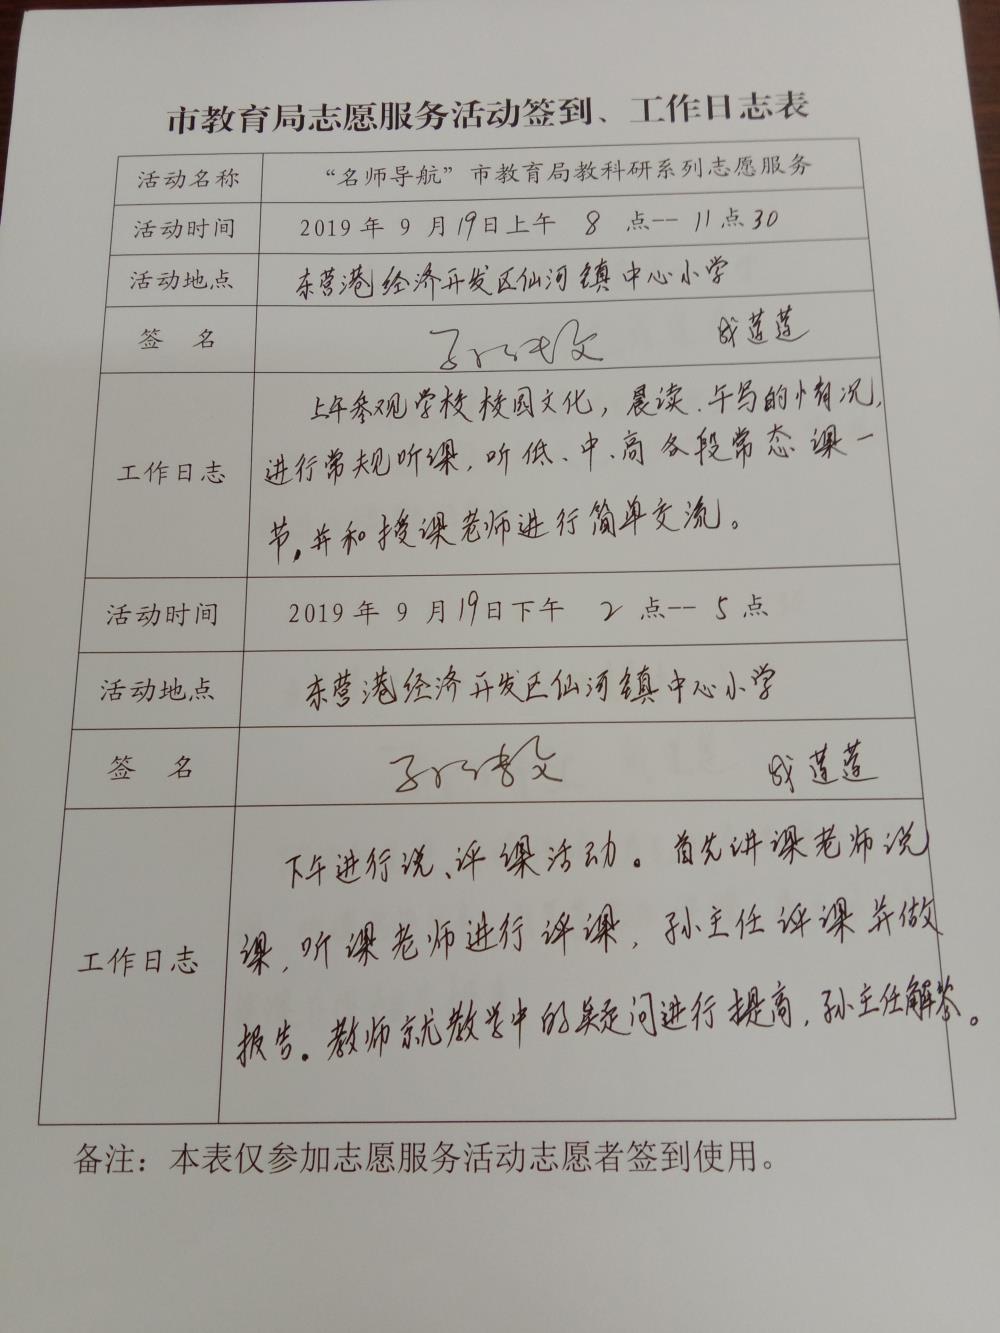 市教育局志愿服务活动签到、工作日志表
活动名称 “名师导航”市教育局教科研系列志愿服务
活动时间 2019年 9月19日上午 8 点--11点30
活动地点 东营港经济开发区仙河镇中心小学
签 名 成莲莲
上午参观学校校园文化，晨读、午写的情况，
进行常规听课，听低、中、高各段常态课一
工作日志
节，并和授课老师进行简单交流。
活动时间 2019年 9月19日下午 2 点--5点
活动地点 东营港经济开发区仙河镇中心小学
签 名 成莲莲
下午进行说、评课活动。首先讲课老师说
课，听课老师进行评课，孙主任评课并做
工作日志
报告。教师就教学中的疑问进行提高，孙主任解答。
备注：本表仅参加志愿服务活动志愿者签到使用。